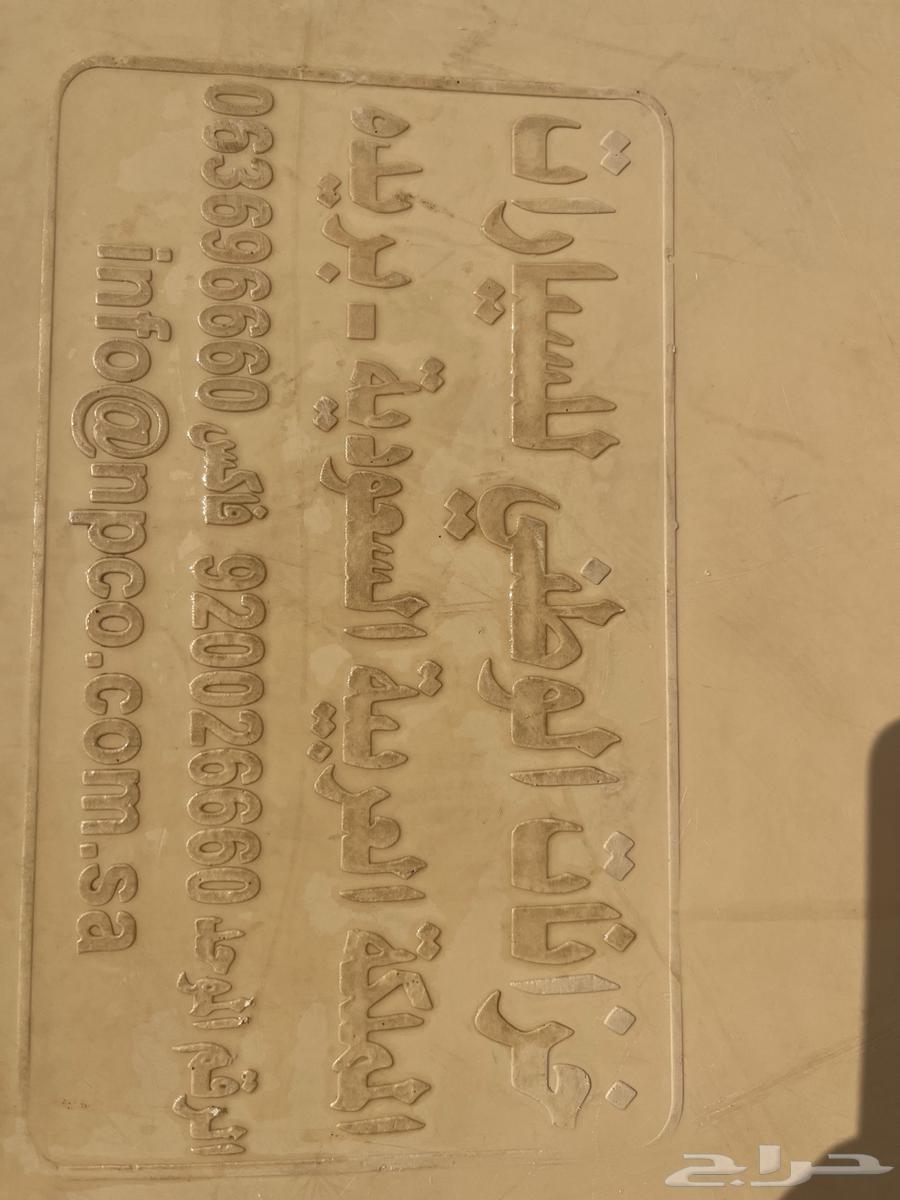 خزانات الوطني للسيارات
المملكة العربية السعودية - بريده
الرقم الموحد 920026660 فاكس 0636966660
info@npco.com.sa
حراج